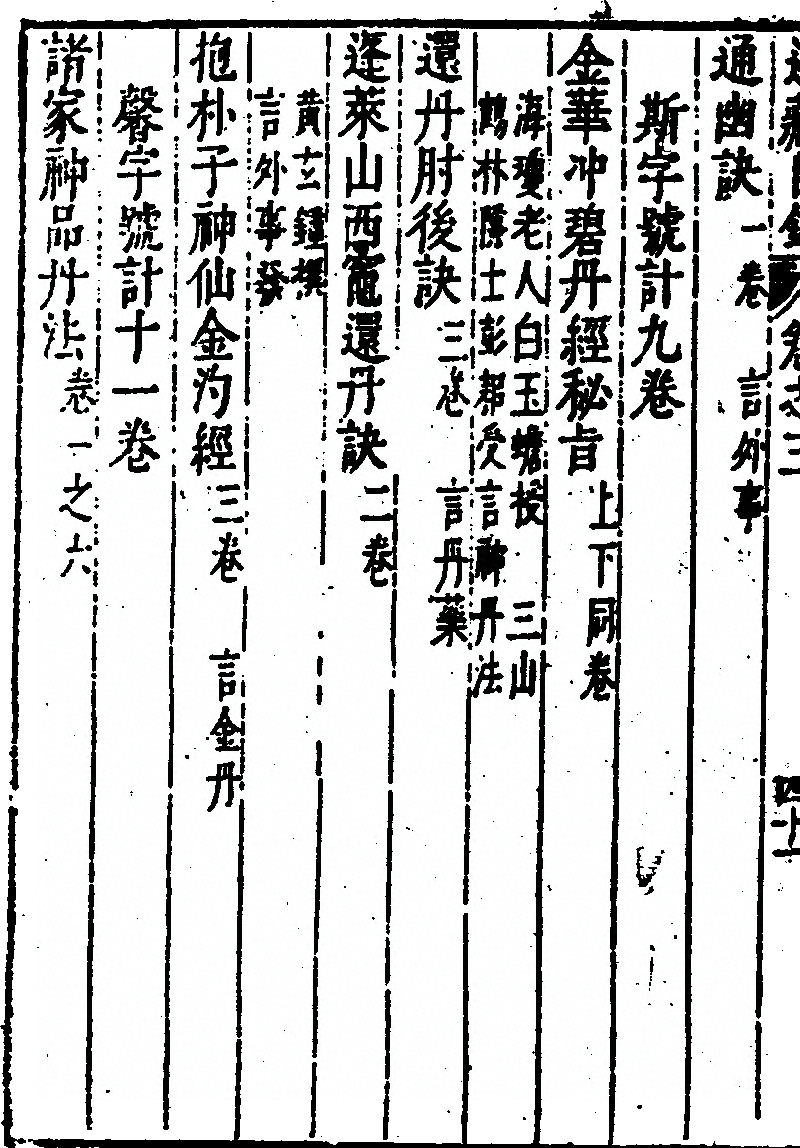 卷之三 四十一
通幽訣 一卷 言外事
斯字號計九卷
金華冲碧丹經秘旨 上下同卷
海瓊老人白玉蟾授 三山
鶴林隱士彭耜受言神丹法
還丹肘後訣 三卷 言丹藥
蓬萊山西竈還丹訣 二卷
黄玄鍾撰
言外事
抱朴子神仙金汋經 三卷 言金丹
馨字號計十一卷
諸家神品丹法 卷一之六